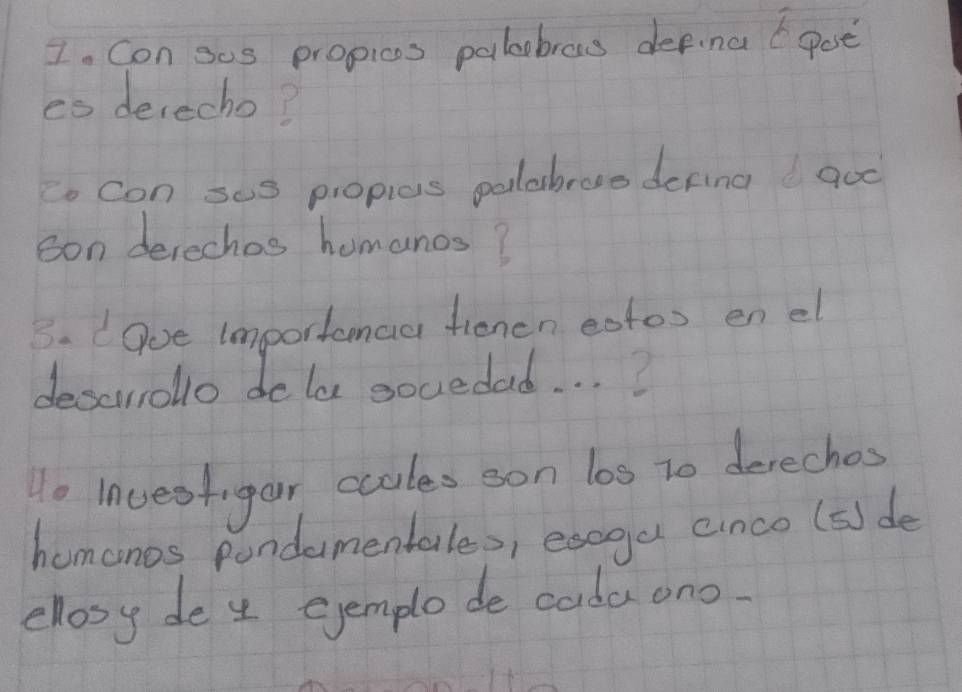 1. Con sus propias palabras defina ¿ que
es derecho?
2. Con sus propias palabras defina ¿ que
son derechos humanos?
3. ¿Que importancia tienen estos en el
desarrollo de la sociedad...?
4. Investigar cuales son los 10 derechos
humanos fundamentales, escoga cinco (5) de
ellos y de 1 ejemplo de cada uno.